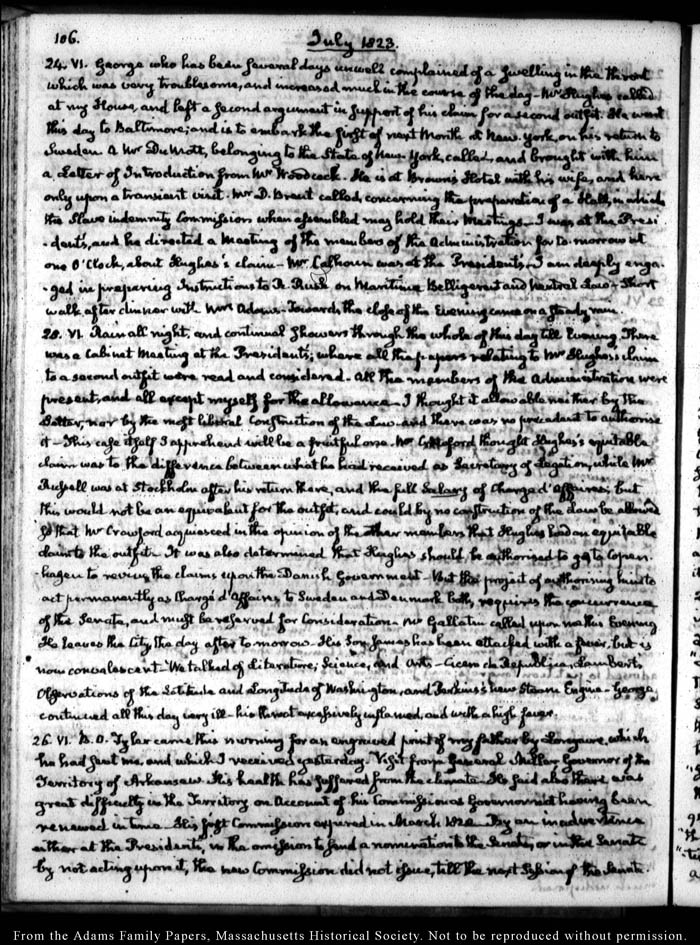 106.
July 1823.
24. VI. George who has been several days unwell complained of a swelling in the throat
which was very troublesome, and increased much in the course of the day — Mr Hughes called
at my House, and left a second argument in support of his claim for a second outfit. He went
this day to Baltimore; and is to embark the first of next Month at New York, on his return to
Sweden. A Mr DeMott, belonging to the State of New York, called, and brought with him
a Letter of Introduction from Mr Woodcock. He is at Brown's Hotel with his wife, and here
only upon a transient visit. Mr D. Brent called, concerning the preparation of a Hall, in which
the Slave indemnity Commission when assembled may hold their Meetings — I was at the Presi
-dent's, and he directed a Meeting of the members of the Administration for to-morrow at
one O'Clock, about Hughes's claim — Mr Calhoun was at the President's — I am deeply enga-
-ged in preparing Instructions to R. Rush on Maritime Belligerent and Neutral Law — Short
walk after dinner with Mrs Adams. Towards the close of the Evening came on a steady rain.
25. VI. Rain all night, and continual Showers through the whole of this day till Evening. There
was a Cabinet Meeting at the President's; where all the papers relating to Mr Hughes's claim
to a second outfit were read and considered — All the members of the Administration were
present, and all except myself for the allowance — I thought it allowable neither by the
Letter, nor by the most liberal Construction of the Law — and there was no precedent to authorise
it — This case itself I apprehend will be a fruitful one. Mr Crawford thought Hughes's equitable
claim was to the difference between what he had received as Secretary of Legation, while Mr
Russell was at Stockholm after his return there, and the full Salary of Chargé d'Affaires; but
this would not be an equivalent for the outfit, and could by no construction of the Law be allowed
so that Mr Crawford acquiesced in the opinion of the other members that Hughes had an equitable
claim to the outfit. It was also determined that Hughes should be authorised to go to Copen-
-hagen to revive the claims upon the Danish Government — But the project of authorising him to
act permanently as Chargé d'Affaires to Sweden and Denmark both, requires the concurrence
of the Senate, and must be reserved for Consideration. Mr Gallatin called upon me this Evening
He leaves the City, the day after to-morrow — His Son James has been attacked with a fever, but is
now convalescent. We talked of Literature, Science, and Arts — Cicero de Republica, Lambert's
Observations of the Latitude and Longitude of Washington, and Perkins's new Steam Engine — George
continued all this day very ill — his throat excessively inflamed, and with a high fever.
26. VI. B. O. Tyler came this morning for an engraved print of my father by Longacre, which
he had sent me, and which I received yesterday. Visit from General Miller Governor of the
Territory of Arkansaw. His health has suffered from the climate. He said also there was
great difficulty in the Territory on Account of his Commission as Governor not having been
renewed in time. His first Commission expired in March 1822. By an inadvertence
either at the President's, in the omission to send a nomination to the Senate, or in the Senate
by not acting upon it, the new Commission did not issue, till the next Session of the Senate.
From the Adams Family Papers, Massachusetts Historical Society. Not to be reproduced without permission.